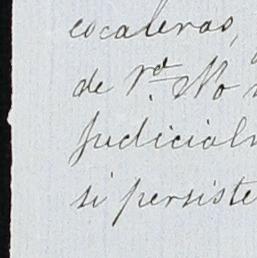 escaleras,
de Vd. No
judicial
si persiste